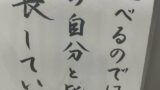 べるのでは
の自分と
長してい